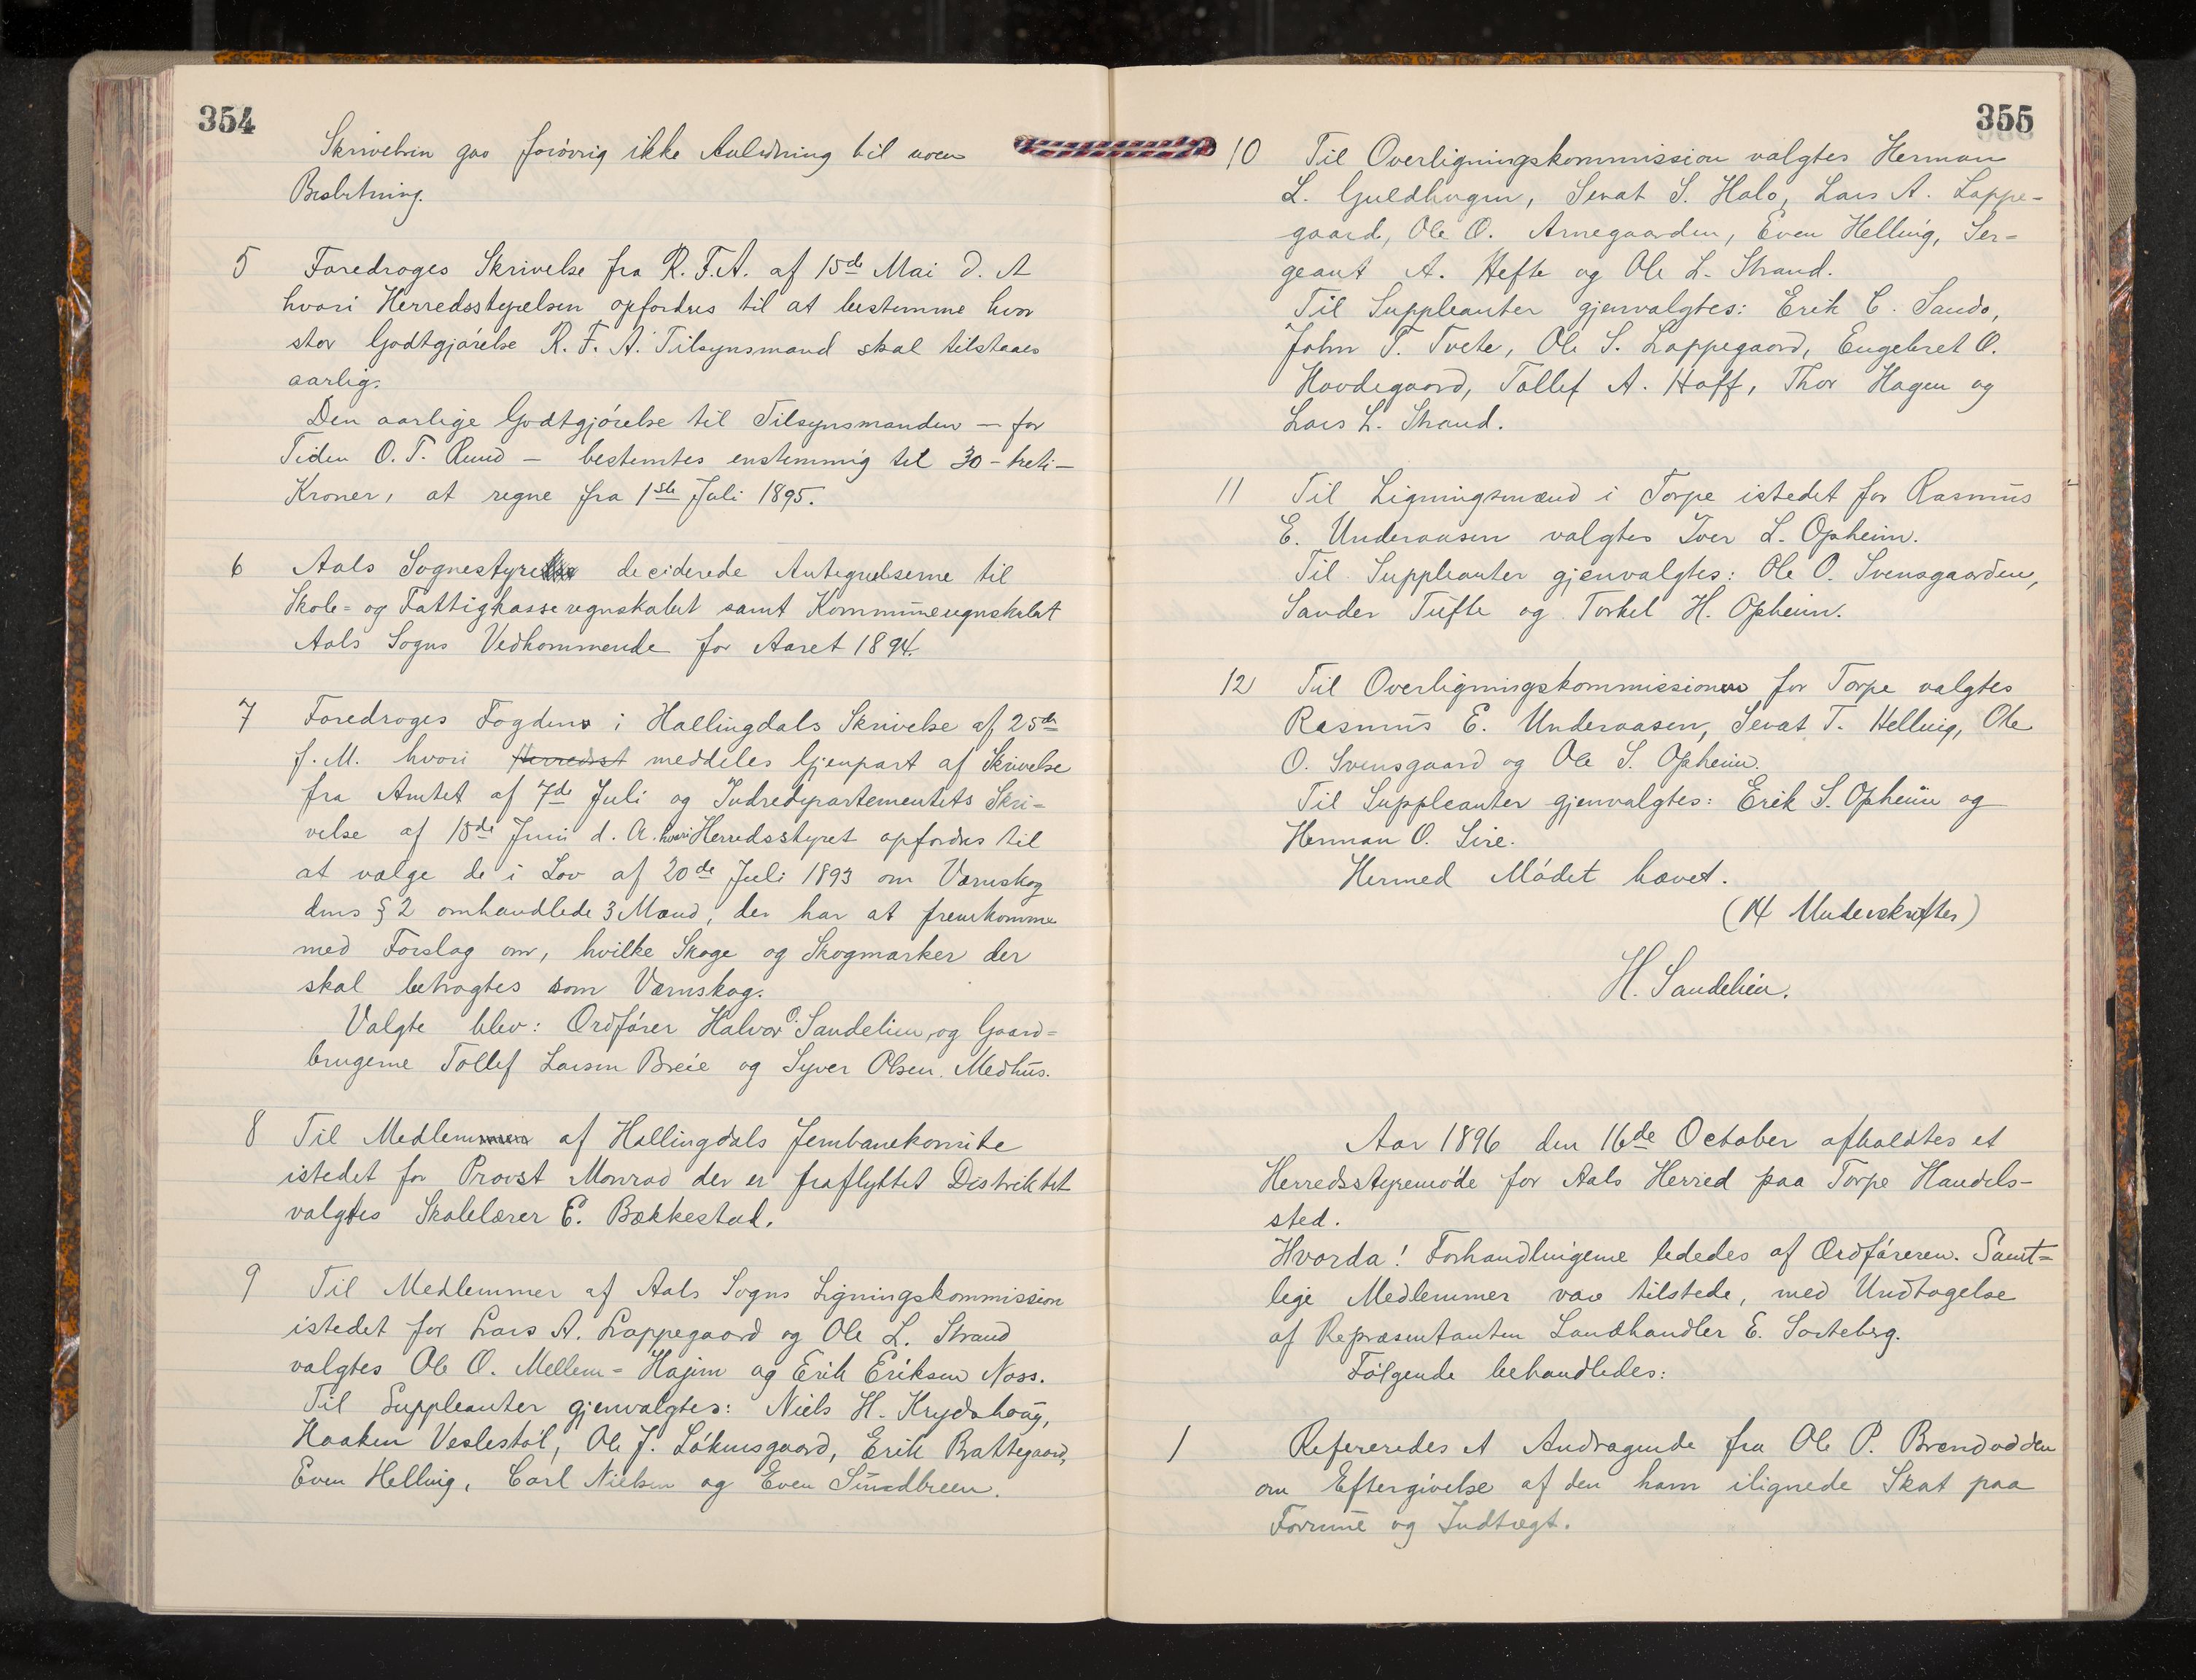 354
Skrivelsen gav forøvrig ikke Anledning til noen
Beslutning.
5 Foredroges Skrivelse fra R. F. A. af 15de Mai d. A
hvori Herredsstyrelsen opfordres til at bestemme hvor
stor Godtgjørelse R. F. A. Tilsynsmand skal tilstaaes
aarlig.
Den aarlige Godtgjørelse til Tilsynsmanden — for
Tiden O. T. Ruud — bestemtes enstemmig til 30 - treti —
Kroner, at regne fra 1ste Juli 1895.
6 Aals Sognestyre deciderede Antegnelserne til
Skole= og Fattigkasseregnskabet samt Kommuneregnskabet
Aals Sogns Vedkommende for Aaret 1894.
7 Foredroges Fogdens i Hallingdals Skrivelse af 25de
f. M. hvori Herredsst meddeles Gjenpart af Skrivelse
fra Amtet af 7de Juli og Indredepartementets Skri=
velse af 15de Juni d. A. hvori Herredsstyret opfordres til
at vælge de i Lov af 20de Juli 1893 om Værnskog
dens § 2 omhandlede 3 Mænd, der har at fremkomme
med Forslag om, hvilke Skoge og Skogmarker der
skal betragtes som Værnskog.
Valgte blev: Ordfører Halvor O. Sandelien, og Gaard=
brugerne Tollef Larsen Breie og Syver Olsen Medhus.
8 Til Medlem af Hallingdals Jernbanekomite
istedet for Provst Monrad der er fraflyttet Distriktet
valgtes Skolelærer E. Bækkestad.
9 Til Medlemmer af Aals Sogns Ligningskommission
istedet for Lars A. Lappegaard og Ole L. Strand
valgtes Ole O. Mellem=Hajem og Erik Eriksen Noss.
Til Suppleanter gjenvalgtes: Niels H. Krydshoug,
Haaken Veslestøl, Ole J. Løkensgaard, Erik Brattegaard,
Even Helling, Carl Nielsen og Even Sundbreen.
355
10 Til Overligningskommission valgtes Herman
L. Guldhagen, Sevat S. Halo, Lars A. Lappe=
gaard, Ole O. Arnegaarden, Even Helling, Ser=
geant A. Hefte og Ole L. Strand.
Til Suppleanter gjenvalgtes: Erik C. Sando,
John T. Tvete, Ole S. Lappegaard, Engebret O.
Hovdegaard, Tollef A. Hoff, Thor Hagen og
Lars L. Strand.
11 Til Ligningsmænd i Torpe istedet for Rasmus
E. Underaasen valgtes Iver L. Opheim.
Til Suppleanter gjenvalgtes: Ole O. Svensgaarden,
Sander Tufte og Torkel H. Opheim.
12 Til Overligningskommissionen for Torpe valgtes
Rasmus E. Underaasen, Sevat T. Helling, Ole
O. Svensgaard og Ole S. Opheim.
Til Suppleanter gjenvalgtes: Erik S. Opheim og
Herman O. Sire.
Hermed Mødet hævet.
(14 Underskrifter)
H. Sandelien.
Aar 1896 den 16de October afholdtes et
Herredsstyremøde for Aals Herred paa Torpe Handels-
sted.
Hvorda! Forhandlingerne lededes af Ordføreren. Samt=
lige Medlemmer var tilstede, med Undtagelse
af Repræsentanten Landhandler E. Sorteberg.
Følgende behandledes:
1 Refereredes et Andragende fra Ole P. Brændodden
om Eftergivelse af den ham ilignede Skat paa
Formue og Indtægt.